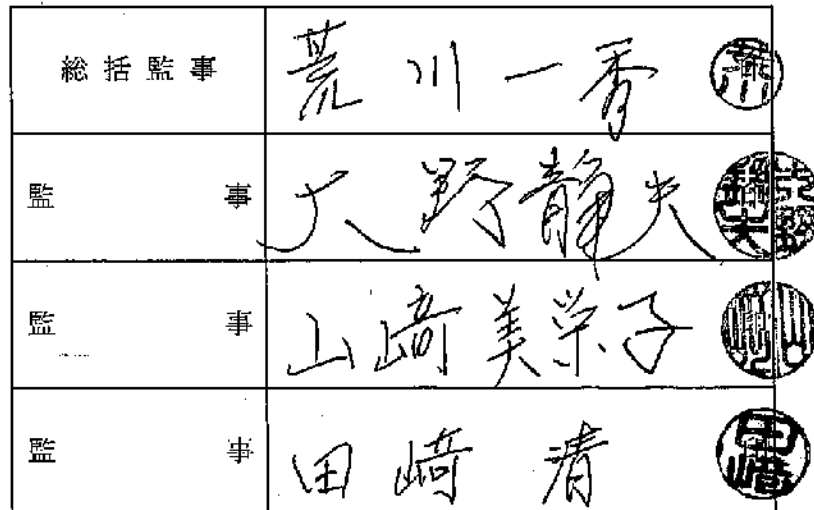 総括監事 荒川一香
監事 大野静夫
監事 山﨑美栄子
監事 田﨑清